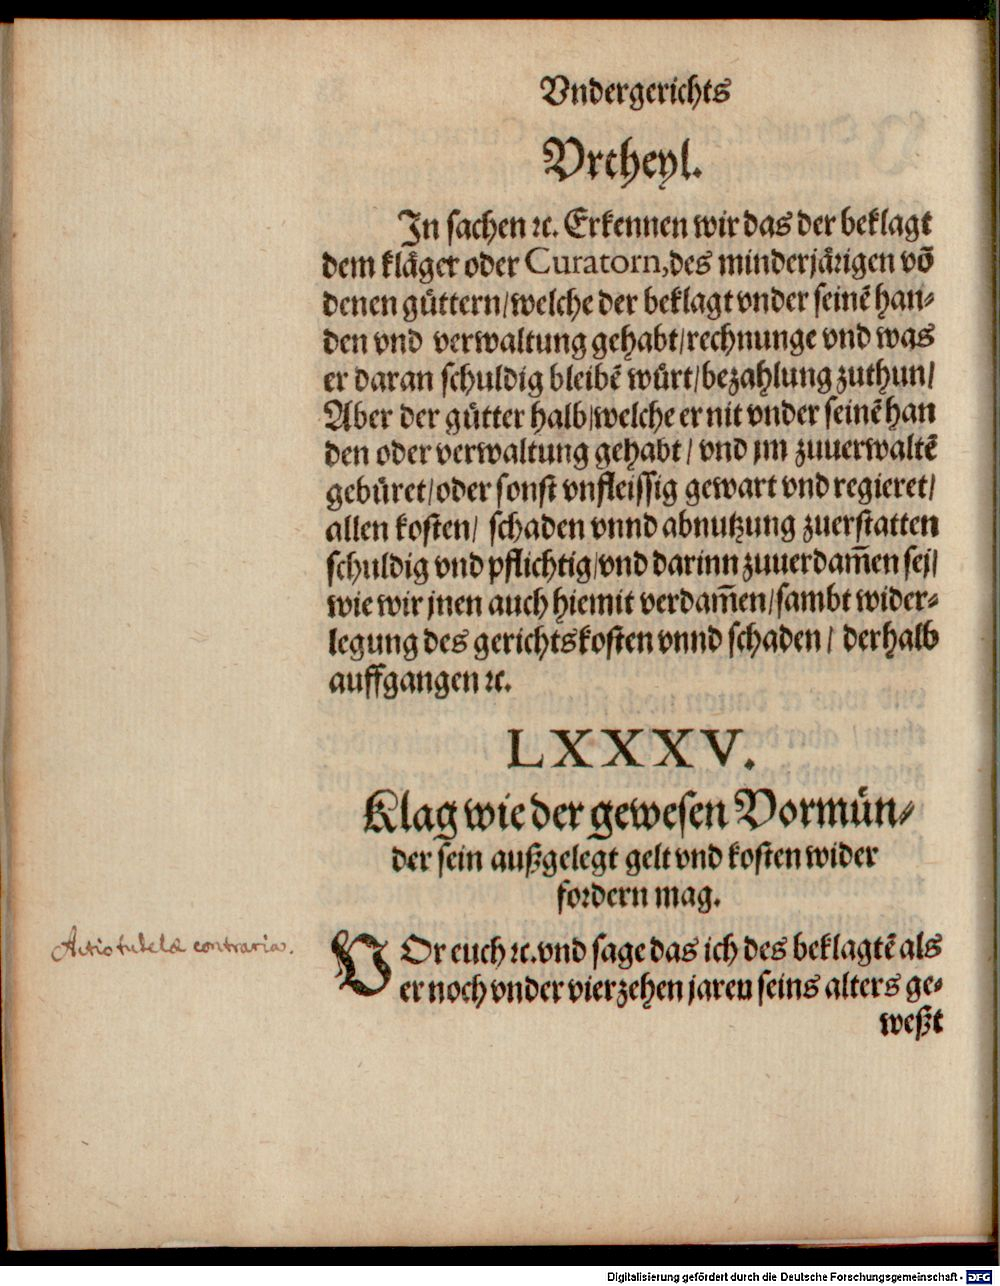 Vndergerichts
Vrtheyl.
In sachen ꝛc. Erkennen wir das der beklagt
dem kläger oder Curatorn, des minderjärigen võ
denen güttern/welche der beklagt vnder seinẽ han-
den vnd verwaltung gehabt/rechnunge vnd was
er daran schuldig bleibẽ würt/bezahlung zuthun/
Aber der gütter halb/welche er nit vnder seinẽ han
den oder verwaltung gehabt/ vnd jm zuuerwaltẽ
gebüret/oder sonst vnfleissig gewart vnd regieret/
allen kosten/ schaden vnnd abnutzung zuerstatten
schuldig vnd pflichtig/vnd darinn zuuerdam̃en sej/
wie wir jnen auch hiemit verdam̃en/sambt wider-
legung des gerichtskosten vnnd schaden/ derhalb
auffgangen ꝛc.
LXXXV.
Klag wie der gewesen Vormün-
der sein außgelegt gelt vnd kosten wider
fordern mag.
Actio tutelæ contraria.
VOr euch ꝛc. vnd sage das ich des beklagtẽ als
er noch vnder vierzehen jareu seins alters ge-
weßt
Digitalisierung gefördert durch die Deutsche Forschungsgemeinschaft - DFG